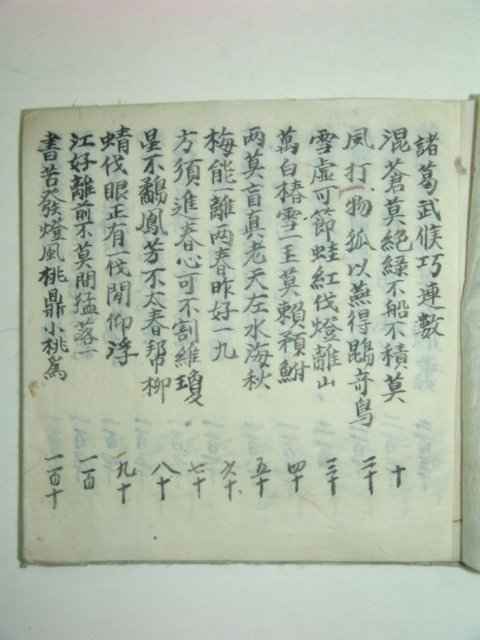 諸葛武候巧連數
混蒼莫絶綠不船不積莫 十
風打物狐以燕得鵾奇鳥 二十
雪虛可節蛙紅伐燈離山 三十
萬白椿雪一王莫賴預鮒 四十
兩莫盲真老天左水海秋 五十
梅能一離兩春昨好一九 六十
方須進春心可不割維瓊 七十
星不鷊鳳芳不太春邦柳 八十
蜻伐眼正有一伐閒仰浮 九十
江好離前不莫閒猛落一 一百
書苦發燈風桃鼎小桃爲 一百十